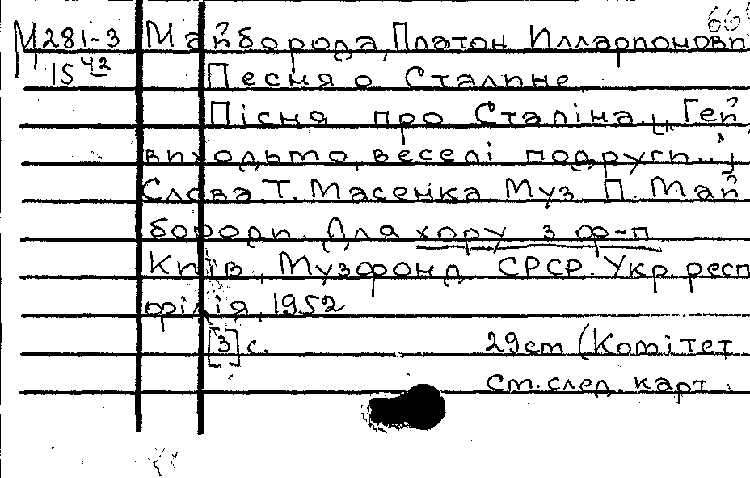 М281-3 Майборода, Платон Илларионови
1542
Песня о Сталине
Пісня про Сталіна. [„Гей,
виходьте, веселі подруги..."]
Слова Т. Масенка Муз. П. Май
бороди. Для хору з ф-п
Київ, Музфонд СРСР. Укр респ
філія, 1952
[3] с. 29 cm (Комітет
См. след. карт.